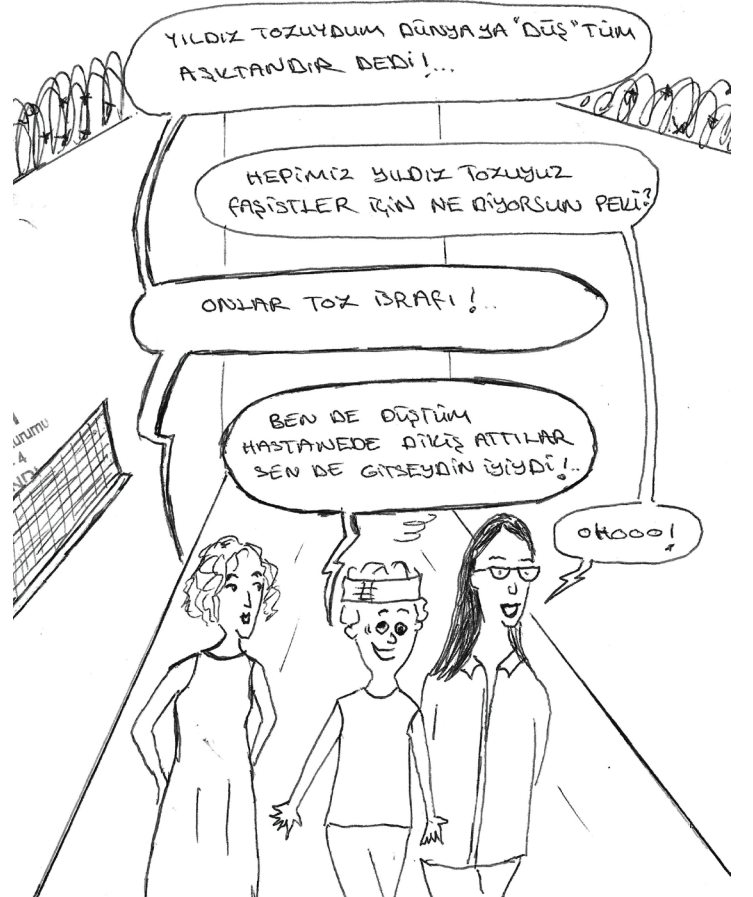 YILDIZ TOZUYDUM DÜNYAYA "DÜŞ"TÜM
AŞKTANDIR DEDİ!...
HEPİMİZ YILDIZ TOZUYUZ
FAŞİSTLER İÇİN NE DİYORSUN PEKİ?
ONLAR TOZ İSRAFI!..
BEN DE DÜŞTÜM
HASTANEDE DİKİŞ ATTILAR
SEN DE GİTSEYDİN İYİYDİ!..
OHOOO!
urumu
4